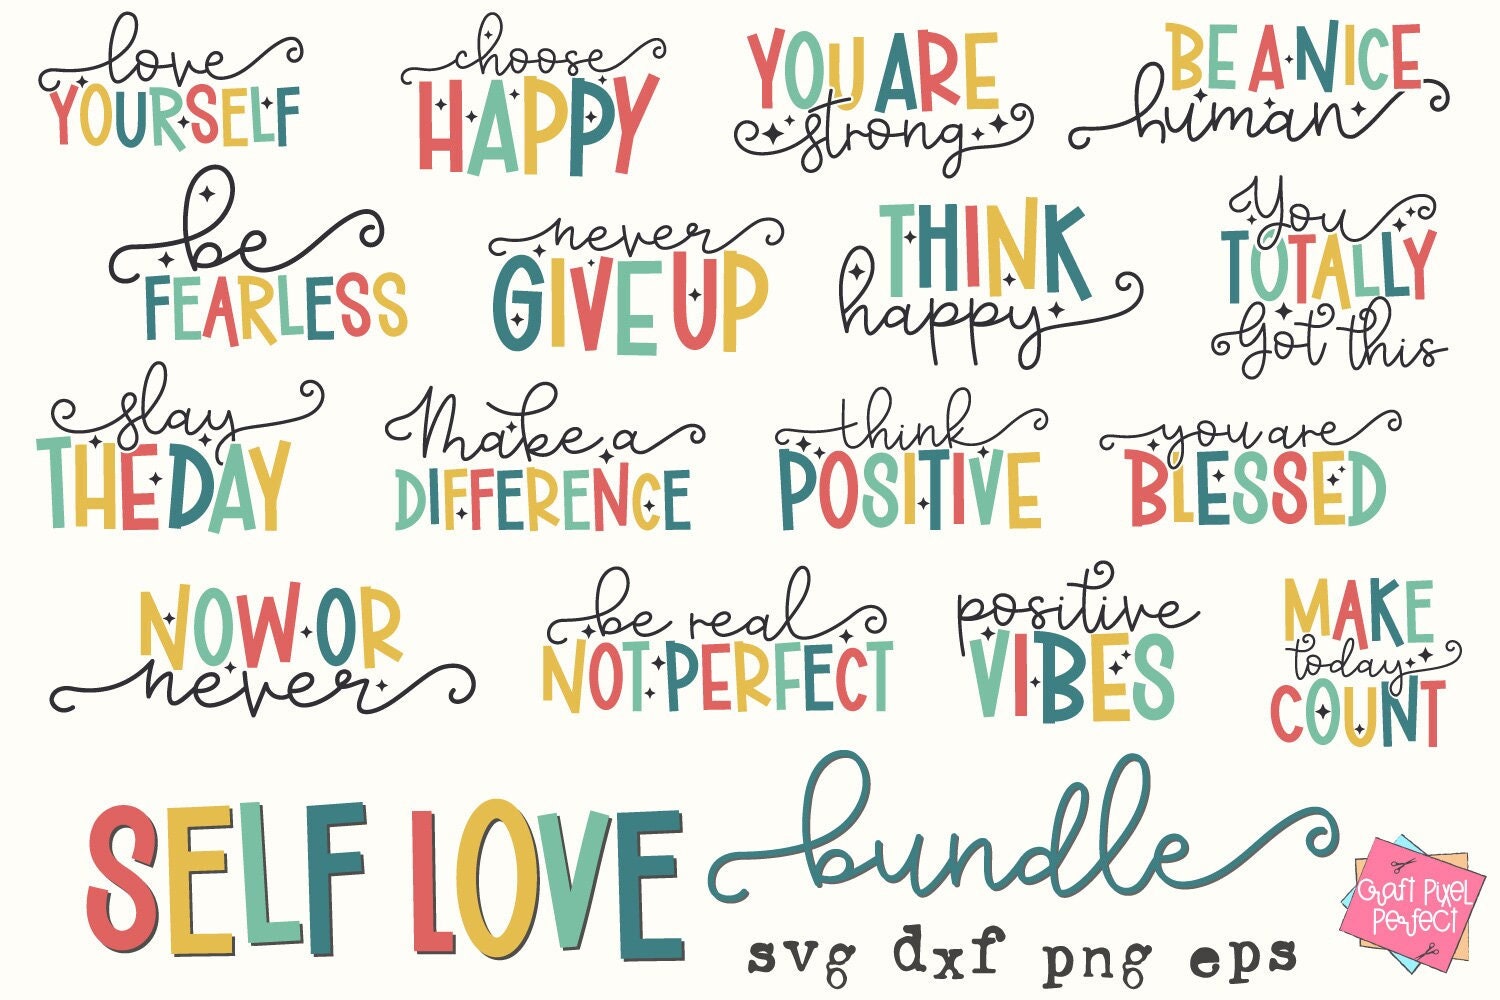 love
YOURSELF
choose
HAPPY
YOU ARE
strong
BE A NICE
human
be
FEARLESS
never
GIVE UP
THINK
happy
You
TOTALLY
Got this
slay
THE DAY
Make a
DIFFERENCE
think
POSITIVE
you are
BLESSED
NOW OR
never
be real
NOT PERFECT
positive
VIBES
MAKE
today
COUNT
SELF LOVE
bundle
svg dxf png eps
Craft Pixel
Perfect